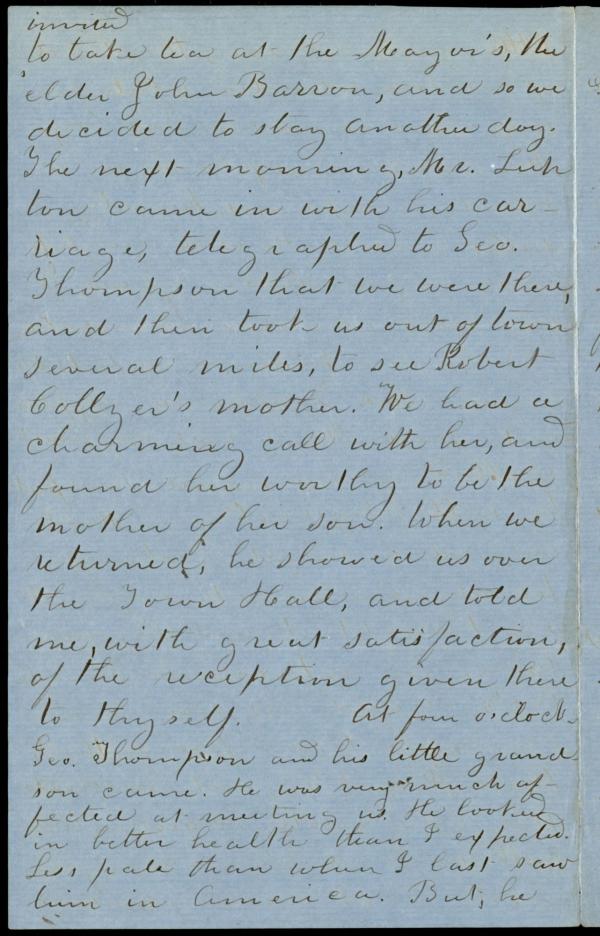 invited
to take tea at the Mayor's, the
elder John Barron, and so we
decided to stay another day.
The next morning, Mr. Lup
ton came in with his car-
riage, telegraphed to Geo.
Thompson that we were there,
and then took us out of town
several miles, to see Robert
Collyer's mother. We had a
charming call with her, and
found her worthy to be the
mother of her son. When we
returned, he showed us over
the Town Hall, and told
me, with great satisfaction,
of the reception given there
to thyself. At four o'clock
Geo. Thompson and his little grand
son came. He was very much af-
fected at meeting us. He looked
in better health than I expected.
Less pale than when I last saw
him in America. But, he